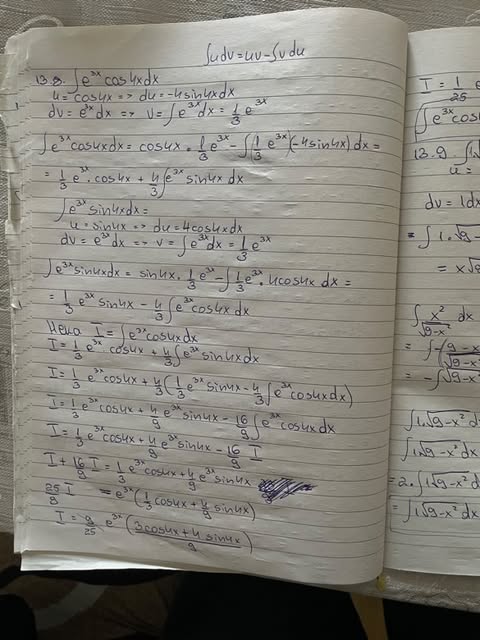 ∫udv = uv - ∫vdu
13.8. ∫e^3x cos4xdx
u = cos4x => du = -4sin4xdx
dv = e^3x dx => v = ∫e^3x dx = 1/3 e^3x
∫e^3x cos4xdx = cos4x · 1/3 e^3x - ∫1/3 e^3x (-4sin4x)dx =
= 1/3 e^3x · cos4x + 4/3 ∫e^3x sin4xdx
∫e^3x sin4xdx =
u = sin4x => du = 4cos4xdx
dv = e^3x dx => v = ∫e^3x dx = 1/3 e^3x
∫e^3x sin4xdx = sin4x · 1/3 e^3x - ∫1/3 e^3x · 4cos4xdx =
= 1/3 e^3x sin4x - 4/3 ∫e^3x cos4xdx
Нека I = ∫e^3x cos4xdx
I = 1/3 e^3x cos4x + 4/3 ∫e^3x sin4xdx
I = 1/3 e^3x cos4x + 4/3 (1/3 e^3x sin4x - 4/3 ∫e^3x cos4xdx)
I = 1/3 e^3x cos4x + 4/9 e^3x sin4x - 16/9 ∫e^3x cos4xdx
I = 1/3 e^3x cos4x + 4/9 e^3x sin4x - 16/9 I
I + 16/9 I = 1/3 e^3x cos4x + 4/9 e^3x sin4x
25/9 I = e^3x (1/3 cos4x + 4/9 sin4x)
I = 9/25 e^3x (3cos4x + 4sin4x / 9)
I = 1/25 e^3x
∫e^3x cos
13.9 ∫1√9
u =
dv = 1dx
= ∫1·√9-
= x√9
∫x²/√9-x² dx
= ∫-(9-x
√9-x²
= -∫√9-x²
∫1√9-x² d
∫1√9-x² dx
2·∫1√9-x² dx
= ∫1√9-x² dx